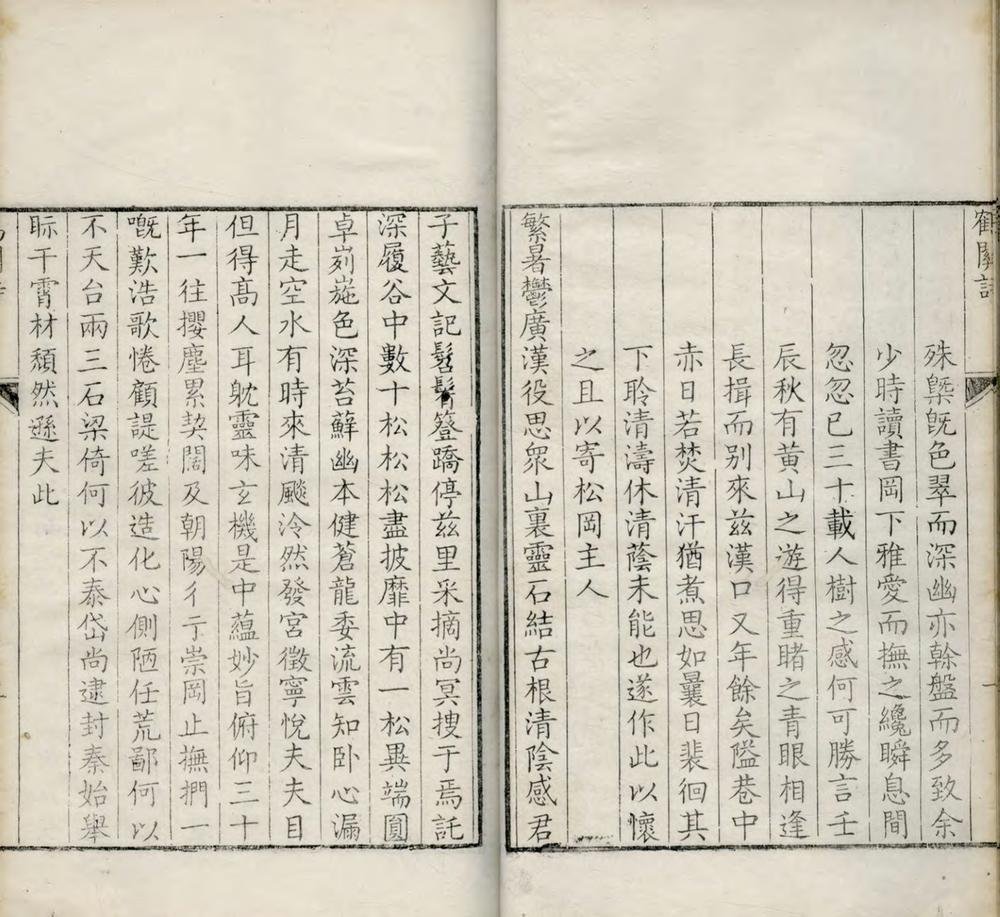 殊槩旣色翠而深幽亦榦盤而多致余
少時讀書岡下雅愛而撫之纔瞬息間
忽忽已三十載人樹之感何可勝言壬
辰秋有黄山之遊得重睹之青眼相逢
長揖而别來兹漢口又年餘矣隘巷中
赤日若焚清汗猶煮思如曩日裴徊其
下聆清濤休清蔭未能也遂作此以懷
之且以寄松岡主人
繁暑鬱廣漢役思衆山裏靈石結古根清陰感君
子藝文記髫鬌簦蹻停兹里采摘尚冥搜于焉託
深履谷中數十松松松盡披靡中有一松異端圓
卓剡㢮色深苔蘚幽本健蒼龍委流雲知卧心漏
月走空水有時來清飈泠然發宮徵寧悅夫夫目
但得髙人耳躭靈味玄機是中蘊妙旨俯仰三十
年一往攖塵累契闊及朝陽彳亍崇岡止撫捫一
嘅歎浩歌惓顧諟嗟彼造化心側陋任荒鄙何以
不天台兩三石梁倚何以不泰岱尚逮封秦始舉
眎干霄材頽然遜夫此